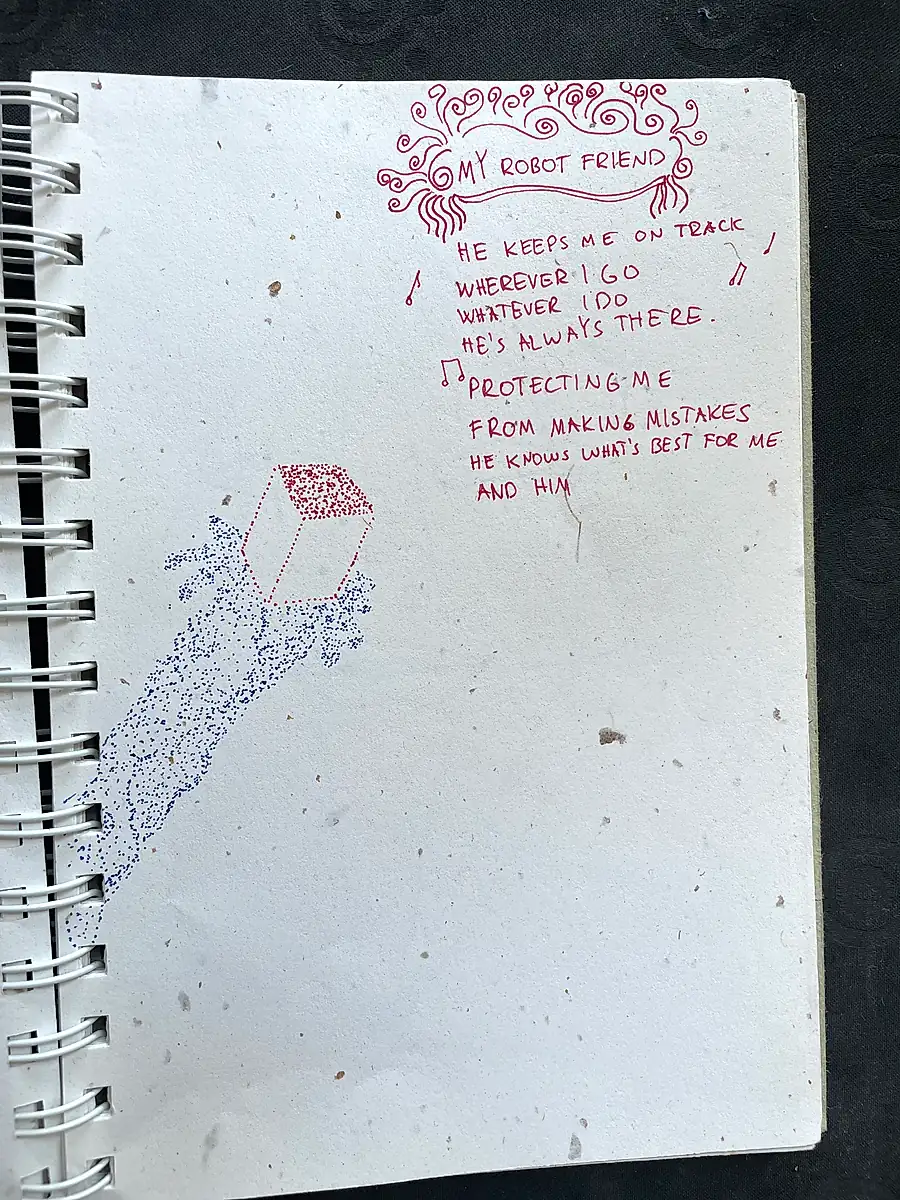 MY ROBOT FRIEND
HE KEEPS ME ON TRACK
WHEREVER I GO
WHATEVER I DO
HE'S ALWAYS THERE.
PROTECTING ME
FROM MAKING MISTAKES
HE KNOWS WHAT'S BEST FOR ME
AND HIM